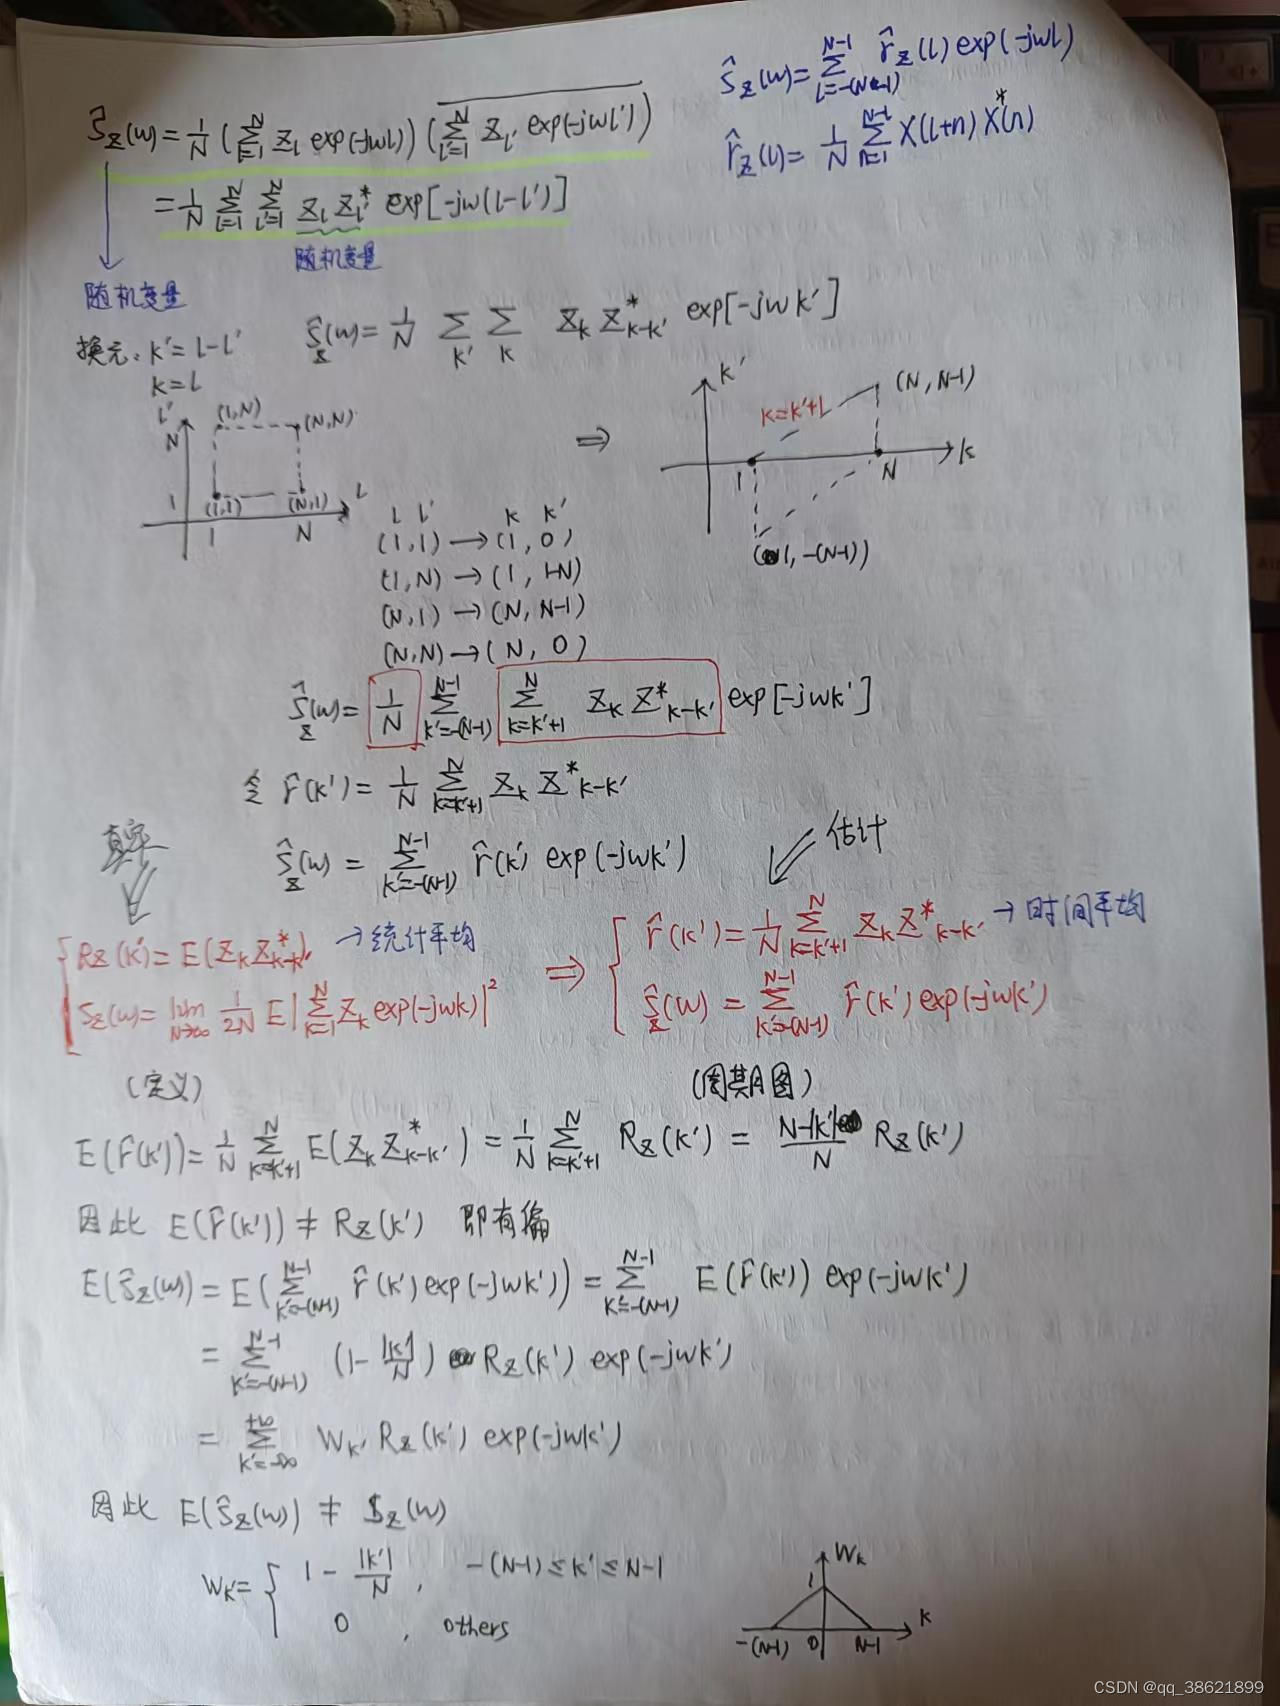 Ŝ_Z(w) = Σ_{l=-(N-1)}^{N-1} r̂_Z(l) exp(-jwl)
r̂_Z(l) = 1/N Σ_{n=1}^{N-l} X(l+n) X*(n)
Ŝ_Z(w) = 1/N (Σ_{l=1}^{N} Z_l exp(-jwl)) (\overline{Σ_{l'=1}^{N} Z_{l'} exp(-jwl')})
= 1/N Σ_{l=1}^{N} Σ_{l'=1}^{N} Z_l Z_{l'}^* exp[-jw(l-l')]
随机变量
随机变量
换元: k' = l-l'
k = l
Ŝ_Z(w) = 1/N Σ_{k'} Σ_k Z_k Z*_{k-k'} exp[-jwk']
l' N (1,N) (N,N)
1 (1,1) (N,1) l
1 N
⇒
k' (N, N-1)
k=k'+1
1 N k
(1, -(N-1))
l l' k k'
(1,1) → (1, 0)
(1,N) → (1, 1-N)
(N,1) → (N, N-1)
(N,N) → (N, 0)
Ŝ_Z(w) = 1/N Σ_{k'=-(N-1)}^{N-1} Σ_{k=k'+1}^{N} Z_k Z*_{k-k'} exp[-jwk']
令 r̂(k') = 1/N Σ_{k=k'+1}^{N} Z_k Z*_{k-k'}
Ŝ_Z(w) = Σ_{k'=-(N-1)}^{N-1} r̂(k') exp(-jwk')
真实
估计
R_Z(k') = E(Z_k Z*_{k-k'}) → 统计平均
S_Z(w) = lim_{N→∞} 1/2N E|Σ_{k=1}^{N} Z_k exp(-jwk)|²
(定义)
⇒
r̂(k') = 1/N Σ_{k=k'+1}^{N} Z_k Z*_{k-k'} → 时间平均
Ŝ_Z(w) = Σ_{k'=-(N-1)}^{N-1} r̂(k') exp(-jwk')
(周期图)
E(r̂(k')) = 1/N Σ_{k=k'+1}^{N} E(Z_k Z*_{k-k'}) = 1/N Σ_{k=k'+1}^{N} R_Z(k') = (N-|k'|)/N R_Z(k')
因此 E(r̂(k')) ≠ R_Z(k') 即有偏
E(Ŝ_Z(w)) = E(Σ_{k'=-(N-1)}^{N-1} r̂(k') exp(-jwk')) = Σ_{k'=-(N-1)}^{N-1} E(r̂(k')) exp(-jwk')
= Σ_{k'=-(N-1)}^{N-1} (1-|k'|/N) R_Z(k') exp(-jwk')
= Σ_{k'=-∞}^{+∞} W_{k'} R_Z(k') exp(-jwk')
因此 E(Ŝ_Z(w)) ≠ S_Z(w)
W_{k'} = { 1 - |k'|/N , -(N-1) ≤ k' ≤ N-1
0 , others
W_k
1
-(N-1) 0 N-1 k
CSDN @qq_38621899